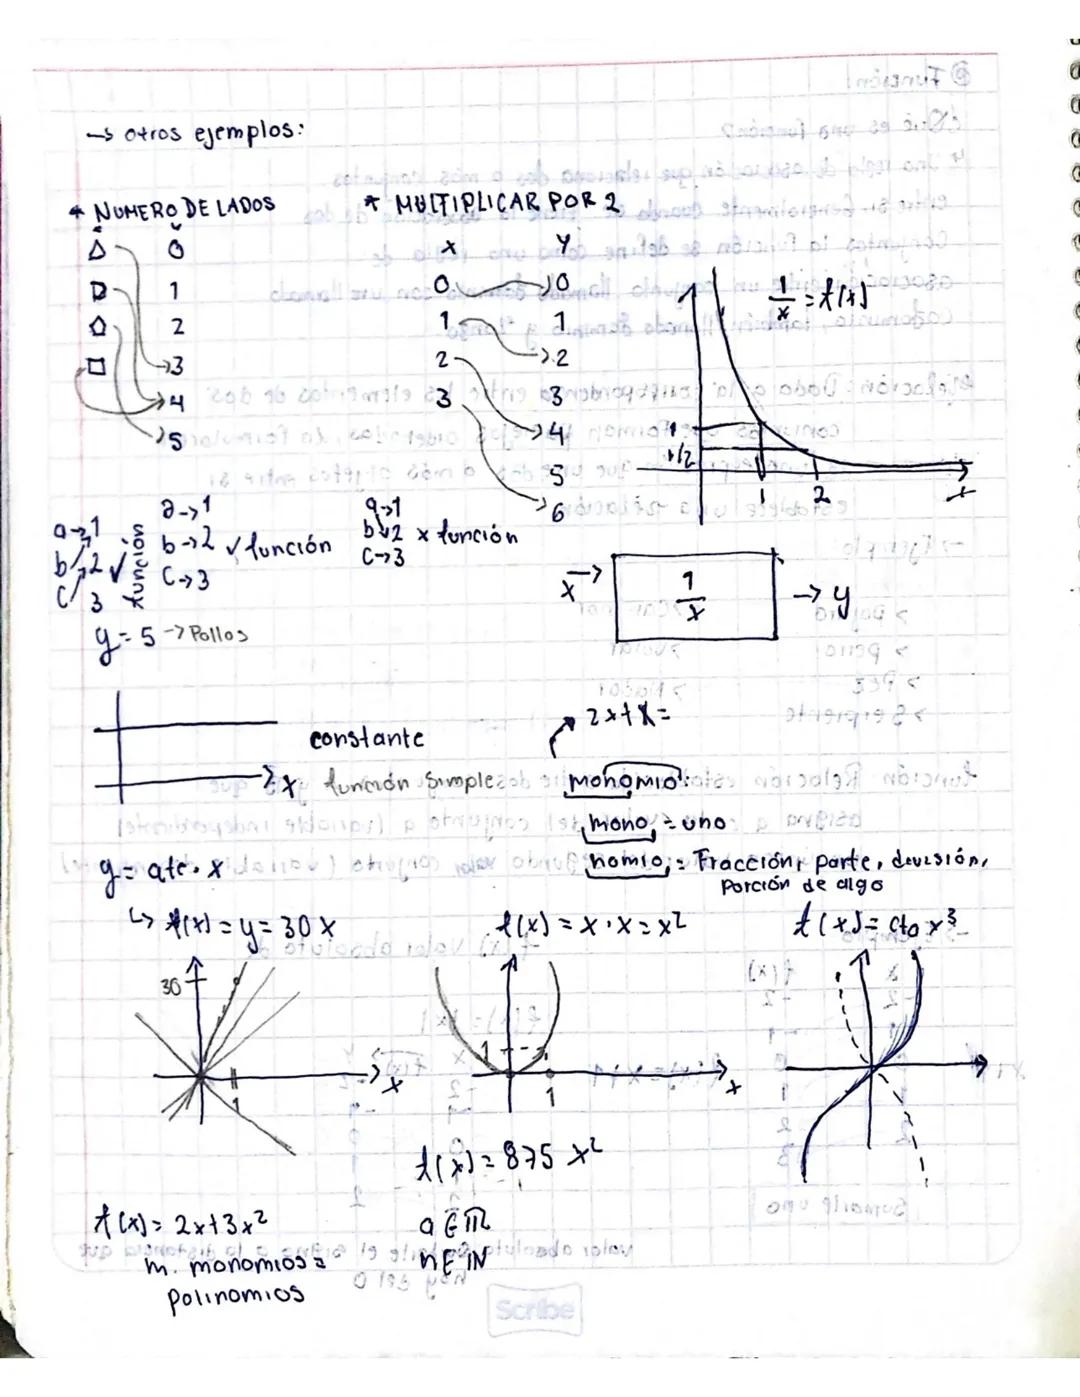 → otros ejemplos:
* NUMERO DE LADOS
0
1
2
3
4
5
* MULTIPLICAR POR 2
x y
0 0
1 1
2 2
3 3
4
5
6
1/x = f(x)
1
1/2
1 2
x
a→1
b 2 ✓
c 3
a→1
b→2 ✓ función
c→3
a→1
b 2 x función
c→3
x → 1/x → y
y = 5 → Pollos
constante
x función simple
2x+x=
monomio:
mono = uno
nomio = Fracción, parte, división,
porción de algo
y = cte. x
↳ f(x) = y = 30 x
30
1
x
f(x) = x·x = x²
1
1
x
f(x) = cto x³
f(x) = 875 x²
a ∈ ℝ
n ∈ ℕ
f(x) = 2x+3x²
m. monomios =
polinomios
Scribe